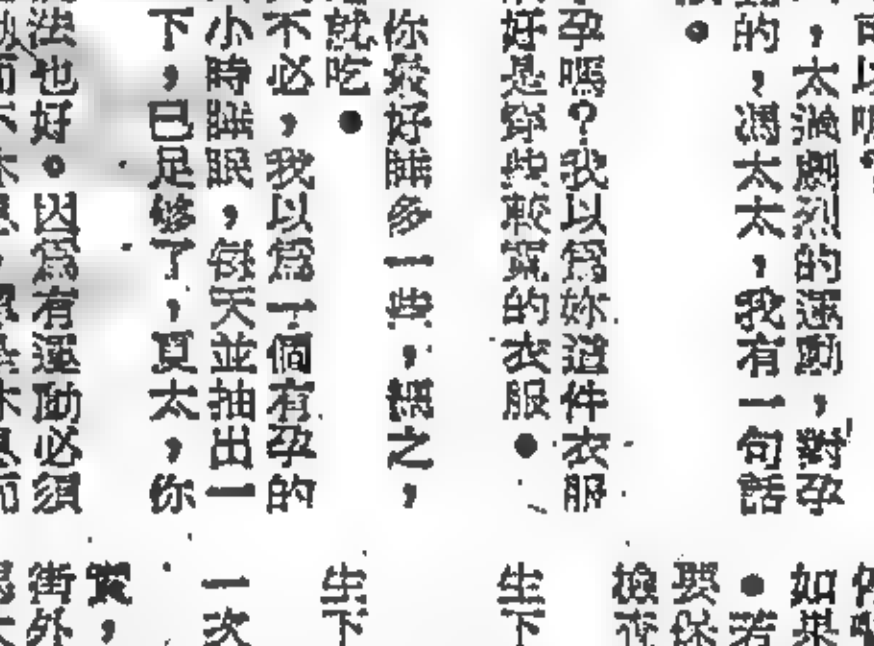 可以嗎?
，太過劇烈的運動，對孕
的，馮太太，我有一句話
。
孕嗎？我以爲妳這件衣服
好是穿些較寬的衣服。
你最好睡多一些，總之，
就吃。
不必，我以爲一個有孕的
小時睡眠，每天並抽出一
下，已足够了，夏太，你
法也好。因爲有運動必須
如果
。若
要休
檢夜
生下
生下
一次
實，
街外